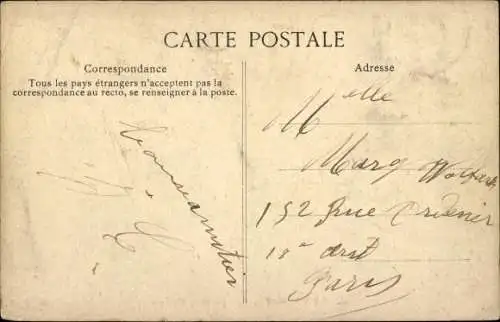 CARTE POSTALE
Correspondance
Tous les pays étrangers n'acceptent pas la
correspondance au recto, se renseigner à la poste.
Adresse
Melle
Marg
152 Rue
10e arrt
Paris